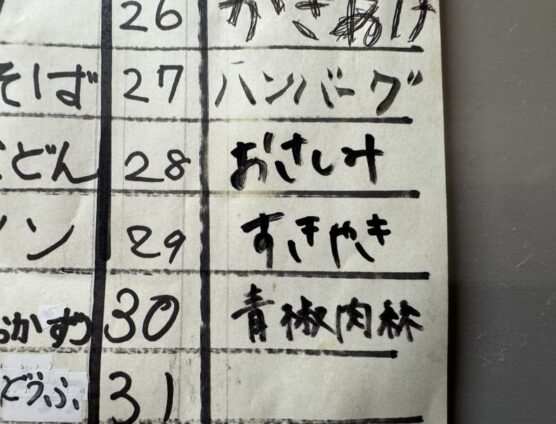 26 かきあげ
そば 27 ハンバーグ
どん 28 おさしみ
ン 29 すきやき
かずつ 30 青椒肉絲
どうふ 31